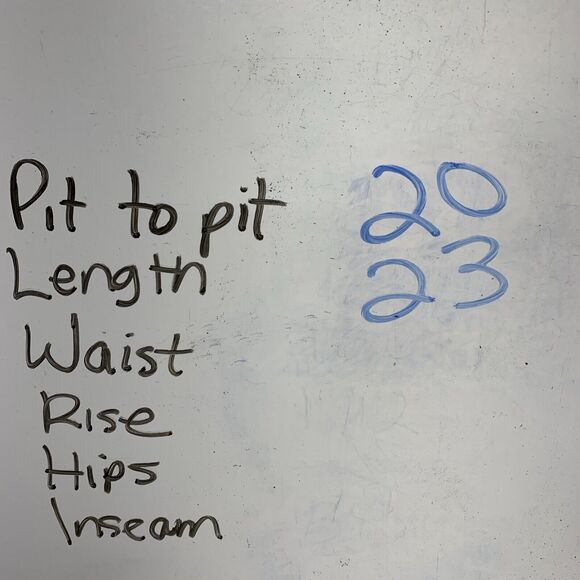 Pit to pit 20
Length 23
Waist
Rise
Hips
Inseam